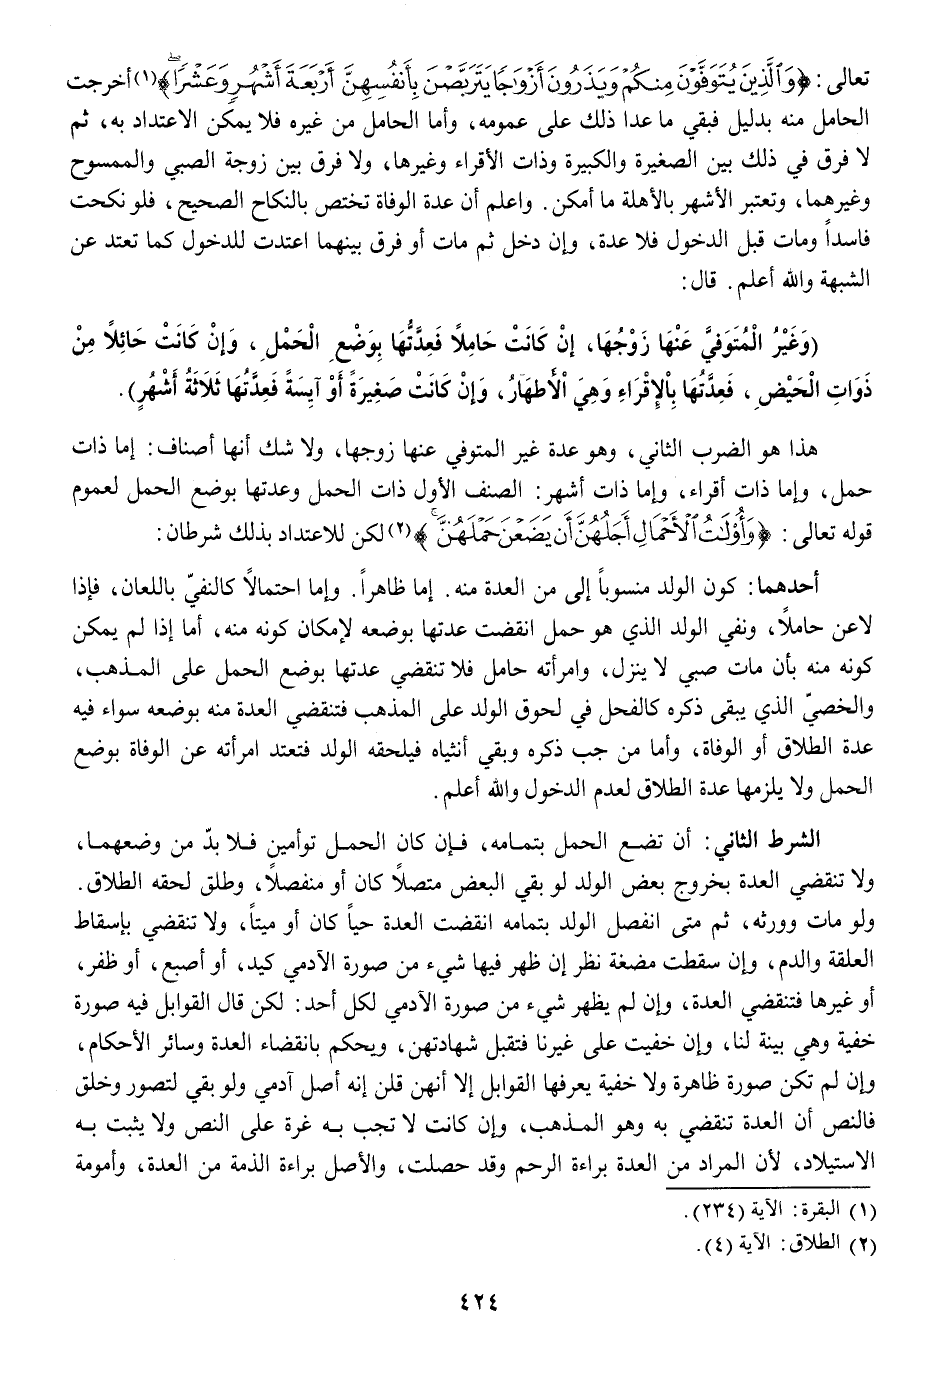 تعالى: ﴿وَٱلَّذِينَ يُتَوَفَّوْنَ مِنكُمْ وَيَذَرُونَ أَزْوَٰجًا يَتَرَبَّصْنَ بِأَنفُسِهِنَّ أَرْبَعَةَ أَشْهُرٍ وَعَشْرًاۖ﴾(١) أخرجت
الحامل منه بدليل فبقي ما عدا ذلك على عمومه، وأما الحامل من غيره فلا يمكن الاعتداد به، ثم
لا فرق في ذلك بين الصغيرة والكبيرة وذات الأقراء وغيرها، ولا فرق بين زوجة الصبي والممسوح
وغيرهما، وتعتبر الأشهر بالأهلة ما أمكن. واعلم أن عدة الوفاة تختص بالنكاح الصحيح، فلو نكحت
فاسداً ومات قبل الدخول فلا عدة، وإن دخل ثم مات أو فرق بينهما اعتدت للدخول كما تعتد عن
الشبهة والله أعلم. قال:
(وَغَيْرُ الْمُتَوَفَّي عَنْهَا زَوْجُهَا، إنْ كَانَتْ حَامِلاً فَعِدَّتُهَا بِوَضْعِ الْحَمْلِ، وَإنْ كَانَتْ حَائِلاً مِنْ
ذَوَاتِ الْحَيْضِ، فَعِدَّتُهَا بِالْإقْرَاءِ وَهِيَ الْأَطهَارُ، وَإنْ كَانَتْ صَغِيرَةً أَوْ آيِسَةً فَعِدَّتُهَا ثَلَاثَةُ أَشْهُرٍ).
هذا هو الضرب الثاني، وهو عدة غير المتوفي عنها زوجها، ولا شك أنها أصناف: إما ذات
حمل، وإما ذات أقراء، وإما ذات أشهر: الصنف الأول ذات الحمل وعدتها بوضع الحمل لعموم
قوله تعالى: ﴿وَأُوْلَٰتُ ٱلْأَحْمَالِ أَجَلُهُنَّ أَن يَضَعْنَ حَمْلَهُنَّۚ﴾(٢) لكن للاعتداد بذلك شرطان:
أحدهما: كون الولد منسوباً إلى من العدة منه. إما ظاهراً. وإما احتمالاً كالنفيّ باللعان، فإذا
لاعن حاملاً، ونفي الولد الذي هو حمل انقضت عدتها بوضعه لإمكان كونه منه، أما إذا لم يمكن
كونه منه بأن مات صبي لا ينزل، وامرأته حامل فلا تنقضي عدتها بوضع الحمل على المذهب،
والخصيّ الذي يبقى ذكره كالفحل في لحوق الولد على المذهب فتنقضي العدة منه بوضعه سواء فيه
عدة الطلاق أو الوفاة، وأما من جب ذكره وبقي أنثياه فيلحقه الولد فتعتد امرأته عن الوفاة بوضع
الحمل ولا يلزمها عدة الطلاق لعدم الدخول والله أعلم.
الشرط الثاني: أن تضع الحمل بتمامه، فإن كان الحمل توأمين فلا بدّ من وضعهما،
ولا تنقضي العدة بخروج بعض الولد لو بقي البعض متصلاً كان أو منفصلاً، وطلق لحقه الطلاق.
ولو مات وورثه، ثم متى انفصل الولد بتمامه انقضت العدة حياً كان أو ميتاً، ولا تنقضي بإسقاط
العلقة والدم، وإن سقطت مضغة نظر إن ظهر فيها شيء من صورة الآدمي كيد، أو أصبع، أو ظفر،
أو غيرها فتنقضي العدة، وإن لم يظهر شيء من صورة الآدمي لكل أحد: لكن قال القوابل فيه صورة
خفية وهي بينة لنا، وإن خفيت على غيرنا فتقبل شهادتهن، ويحكم بانقضاء العدة وسائر الأحكام،
وإن لم تكن صورة ظاهرة ولا خفية يعرفها القوابل إلا أنهن قلن إنه أصل آدمي ولو بقي لتصور وخلق
فالنص أن العدة تنقضي به وهو المذهب، وإن كانت لا تجب به غرة على النص ولا يثبت به
الاستيلاد، لأن المراد من العدة براءة الرحم وقد حصلت، والأصل براءة الذمة من العدة، وأمومة
(١) البقرة: الآية (٢٣٤).
(٢) الطلاق: الآية (٤).
٤٢٤